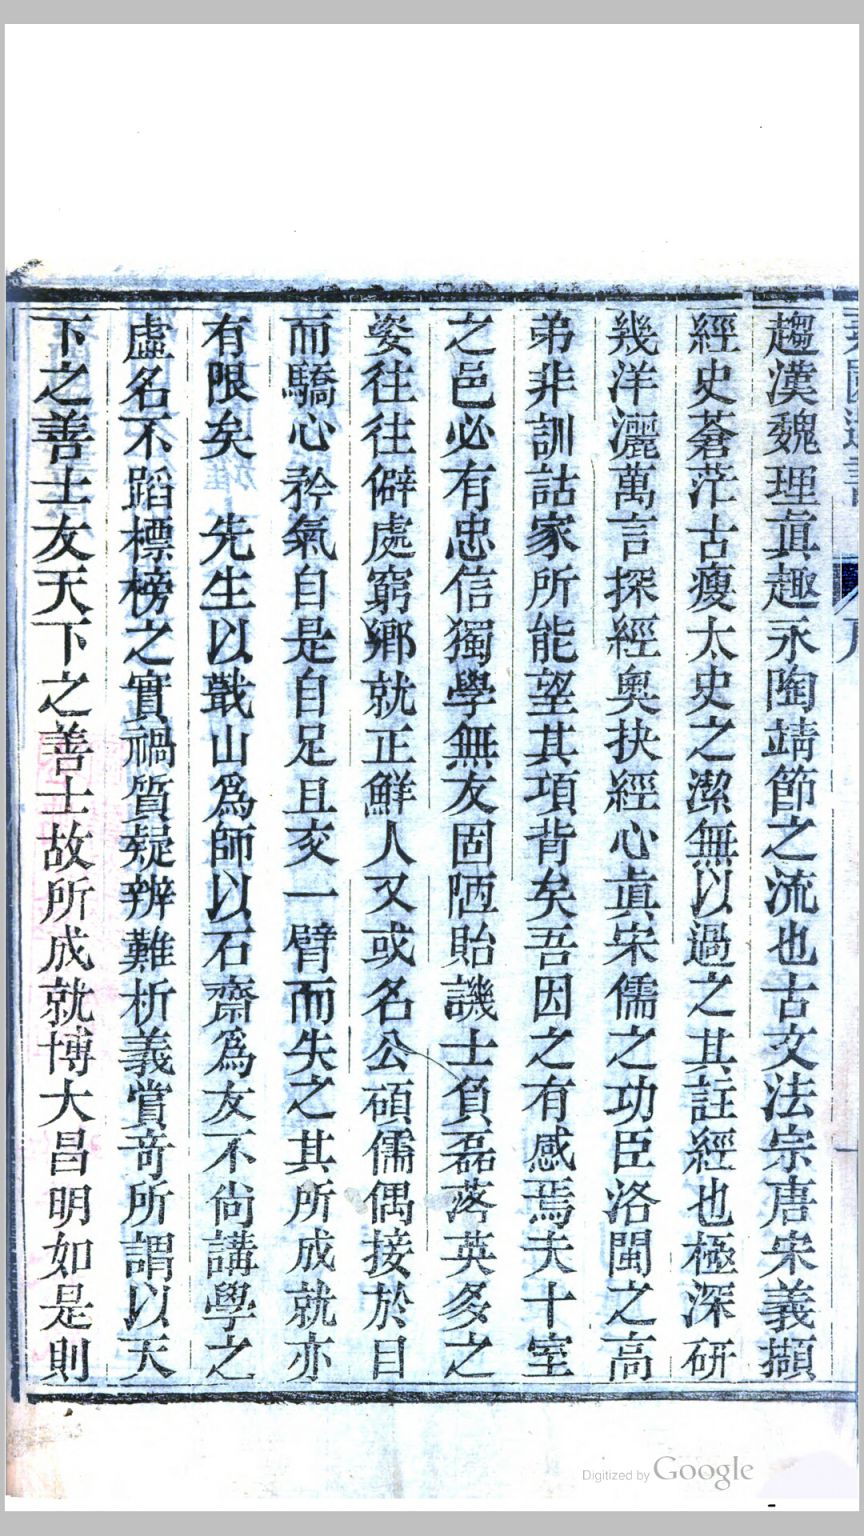 趨漢魏理眞趣永陶靖節之流也古文法宗唐宋義擷
經史蒼茫古瘦太史之潔無以過之其註經也極深研
幾洋灑萬言探經奧抉經心眞宋儒之功臣洛閩之高
弟非訓詁家所能望其項背矣吾因之有感焉夫十室
之邑必有忠信獨學無友固陋貽譏士負磊落英多之
姿往往僻處窮鄉就正鮮人又或名公碩儒偶接於目
而驕心矜氣自是自足且交一臂而失之其所成就亦
有限矣 先生以戢山爲師以石齋爲友不尙講學之
虛名不蹈標榜之實禍質疑辨難析義賞奇所謂以天
下之善士友天下之善士故所成就博大昌明如是則
Digitized by Google